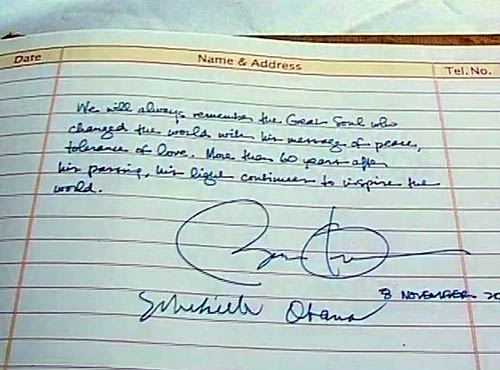 Date Name & Address Tel. No.
We will always remember the Great Soul who
changed the world with his message of peace,
tolerance of love. More than 60 years after
his passing, his light continues to inspire the
world.
8 NOVEMBER 20
Michelle Obama